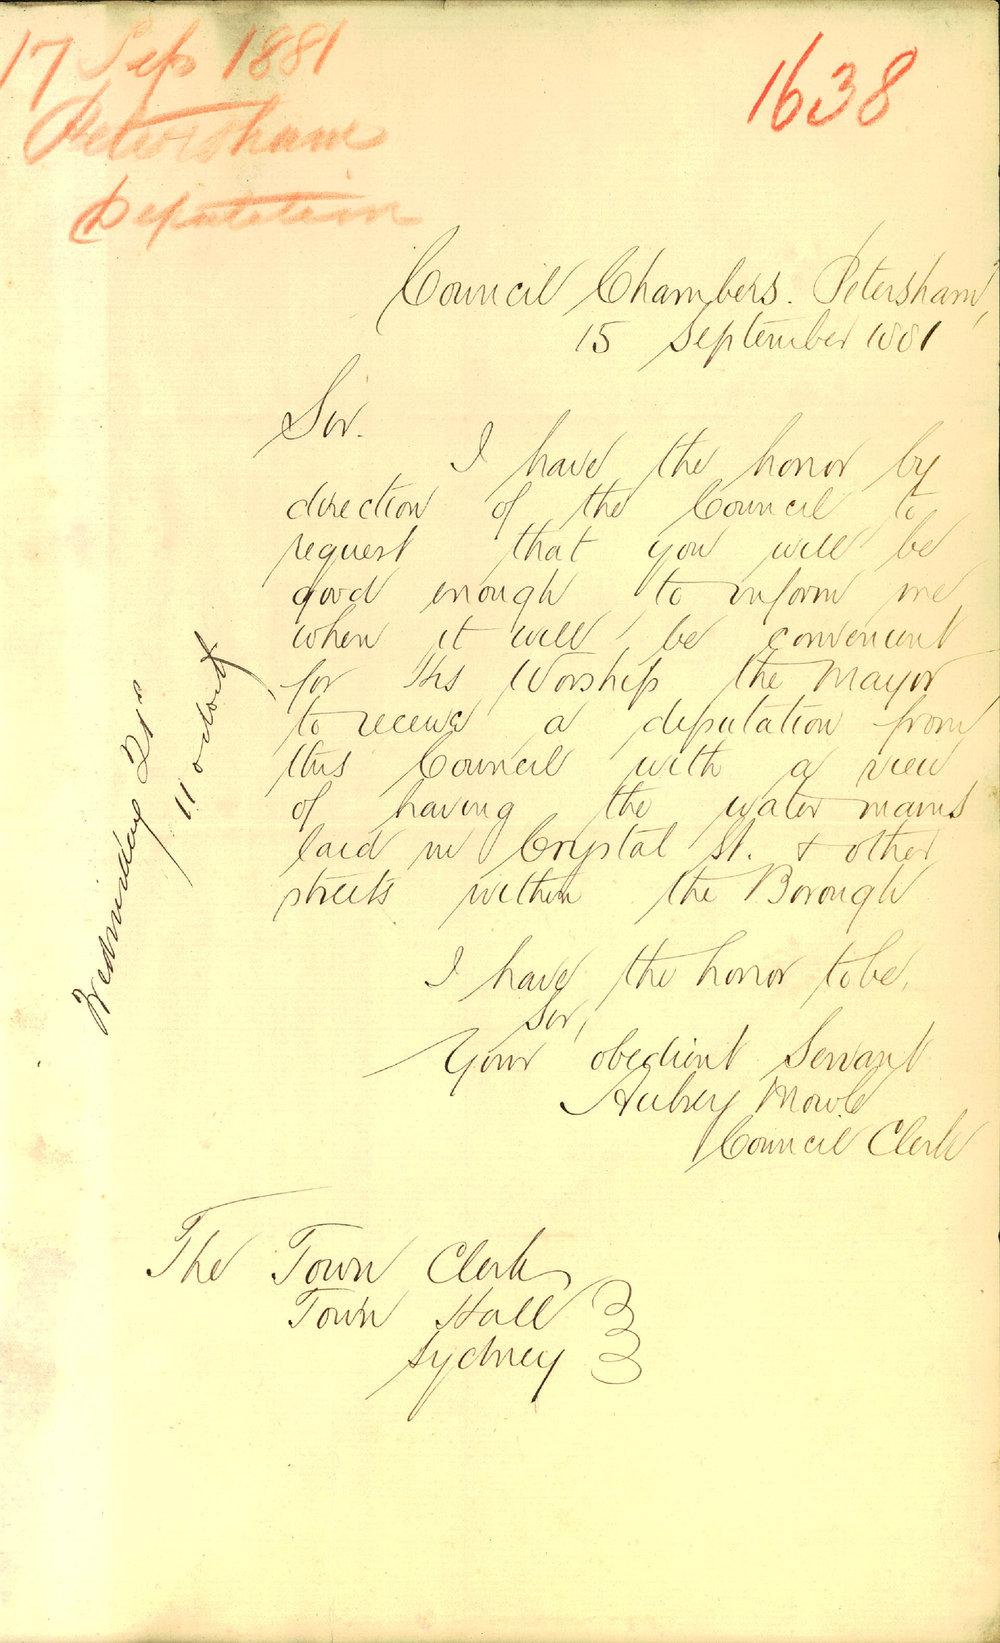 17 Sep 1881
Petersham
Deputation
1638
Council Chambers. Petersham,
15 September 1881
Sir.
I have the honor by
direction of the Council to
request that you will be
good enough to inform me
when it will be convenient
for His Worship the Mayor
to receive a deputation from
this Council with a view
of having the water mains
laid in Crystal St. & other
streets within the Borough
I have the honor to be,
Sir,
Your obedient Servant
Aubrey Mowle
Council Clerk
The Town Clerk
Town Hall
Sydney
Wednesday 21st
11 oclock